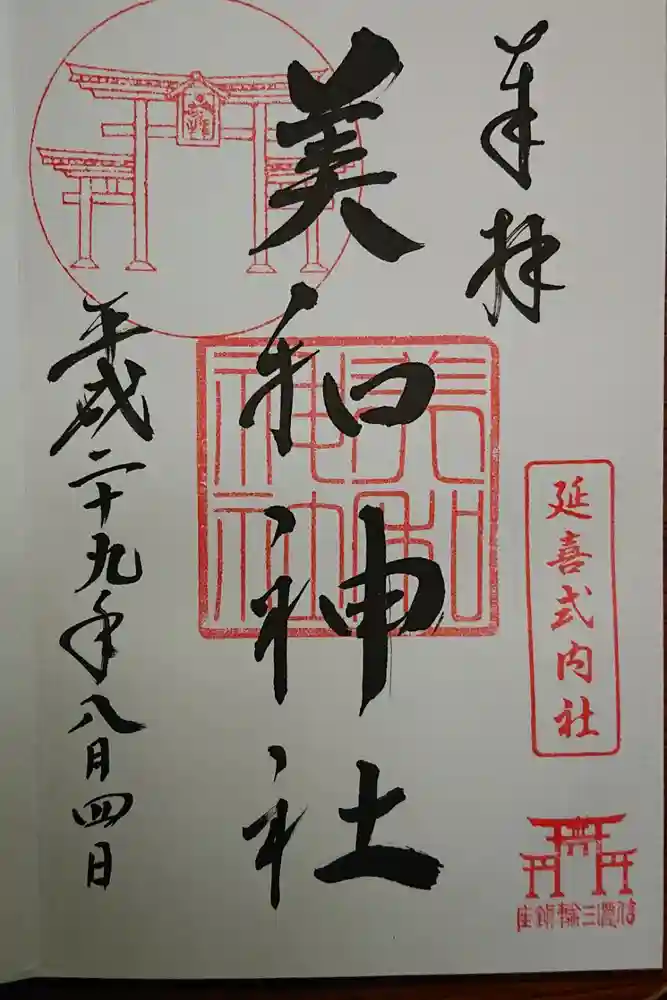 奉拝
延喜式内社
美和神社
美和
神社
平成二十九年八月四日